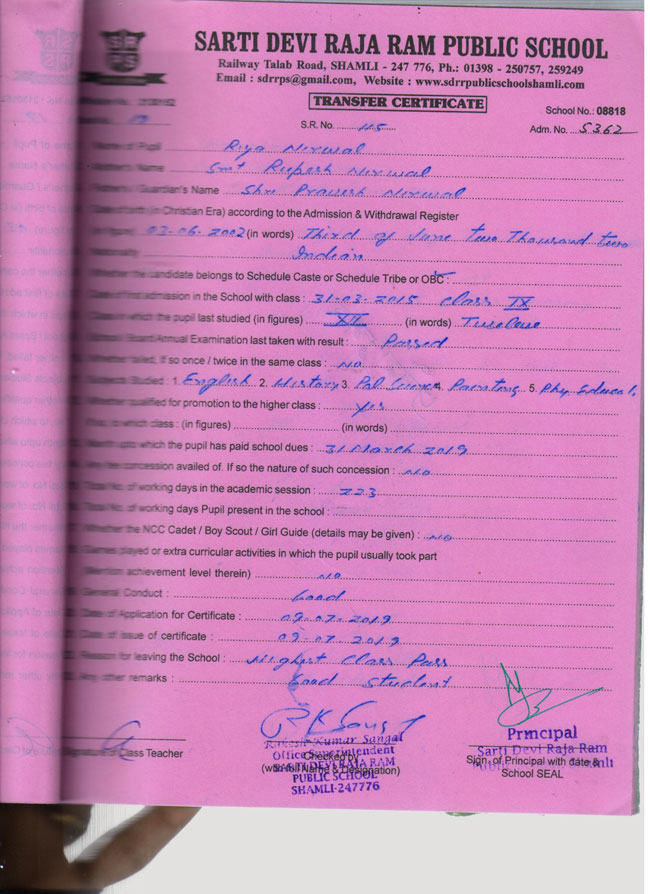 SRPS
SARTI DEVI RAJA RAM PUBLIC SCHOOL
Railway Talab Road, SHAMLI - 247 776, Ph.: 01398 - 250757, 259249
Email : sdrrps@gmail.com, Website : www.sdrrpublicschoolshamli.com
TRANSFER CERTIFICATE
School No.: 08818
S.R. No. 115
Adm. No. 5362
Name of Pupil Riya Nirwal
Mother's Name Smt Rupesh Nirwal
Father's / Guardian's Name Shri Pravesh Nirwal
(in Christian Era) according to the Admission & Withdrawal Register
03-06-2002 (in words) Third of June Two Thousand Two
Nationality Indian
Whether the candidate belongs to Schedule Caste or Schedule Tribe or OBC :
Date of first admission in the School with class : 31-03-2015 Class IX
in which the pupil last studied (in figures) XII (in words) Twelve
Board/Annual Examination last taken with result : Passed
Whether failed, If so once / twice in the same class : No
Subjects Studied : 1. English 2. History 3. Pol Science 4. Painting 5. Phy Educat.
Whether qualified for promotion to the higher class : Yes
to which class : (in figures) (in words)
Month upto which the pupil has paid school dues : 31 March 2019
Any fee concession availed of. If so the nature of such concession : No
Total No. of working days in the academic session : 223
Total No. of working days Pupil present in the school :
Whether the NCC Cadet / Boy Scout / Girl Guide (details may be given) : No
Games played or extra curricular activities in which the pupil usually took part
(Mention achievement level therein) No
General Conduct : Good
Date of Application for Certificate : 09-07-2019
Date of issue of certificate : 09-07-2019
Reason for leaving the School : Highest Class Pass
Any other remarks : Good Student
Signature of Class Teacher
RKSangal
Rakesh Kumar Sangal
Office Superintendent
Checked by
SARTI DEVI RAJA RAM
(with full Name & Designation)
PUBLIC SCHOOL
SHAMLI-247776
Principal
Sarti Devi Raja Ram
Sign. of Principal with date &
School SEAL